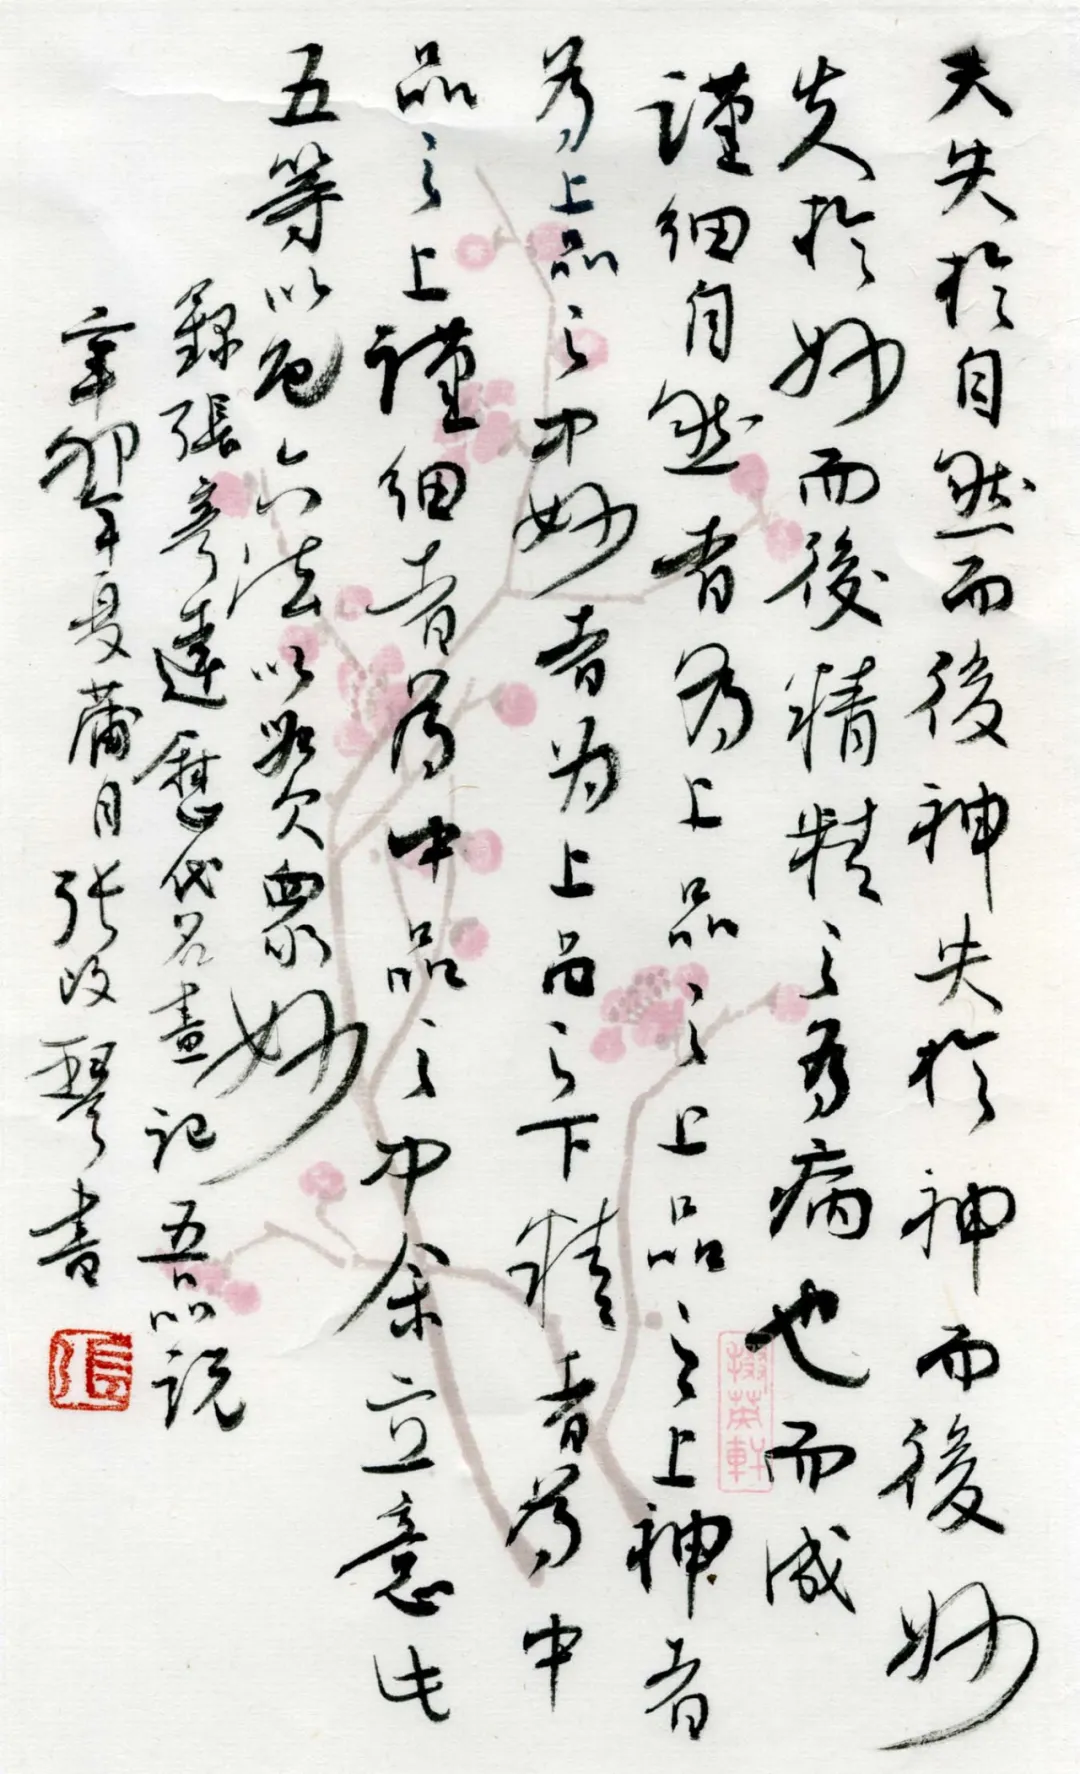 夫失於自然而後神失於神而後妙
失於妙而後精精之為病也而成
謹細自然者為上品之上上品之上神者
為上品之中妙者为上品之下精者為中
品之上謹細者為中品之中余立意此
五等以包六法以貫眾妙
錄張彥遠歷代名畫記五品說
辛卯年夏蒲月張改琴書
張
掇英軒